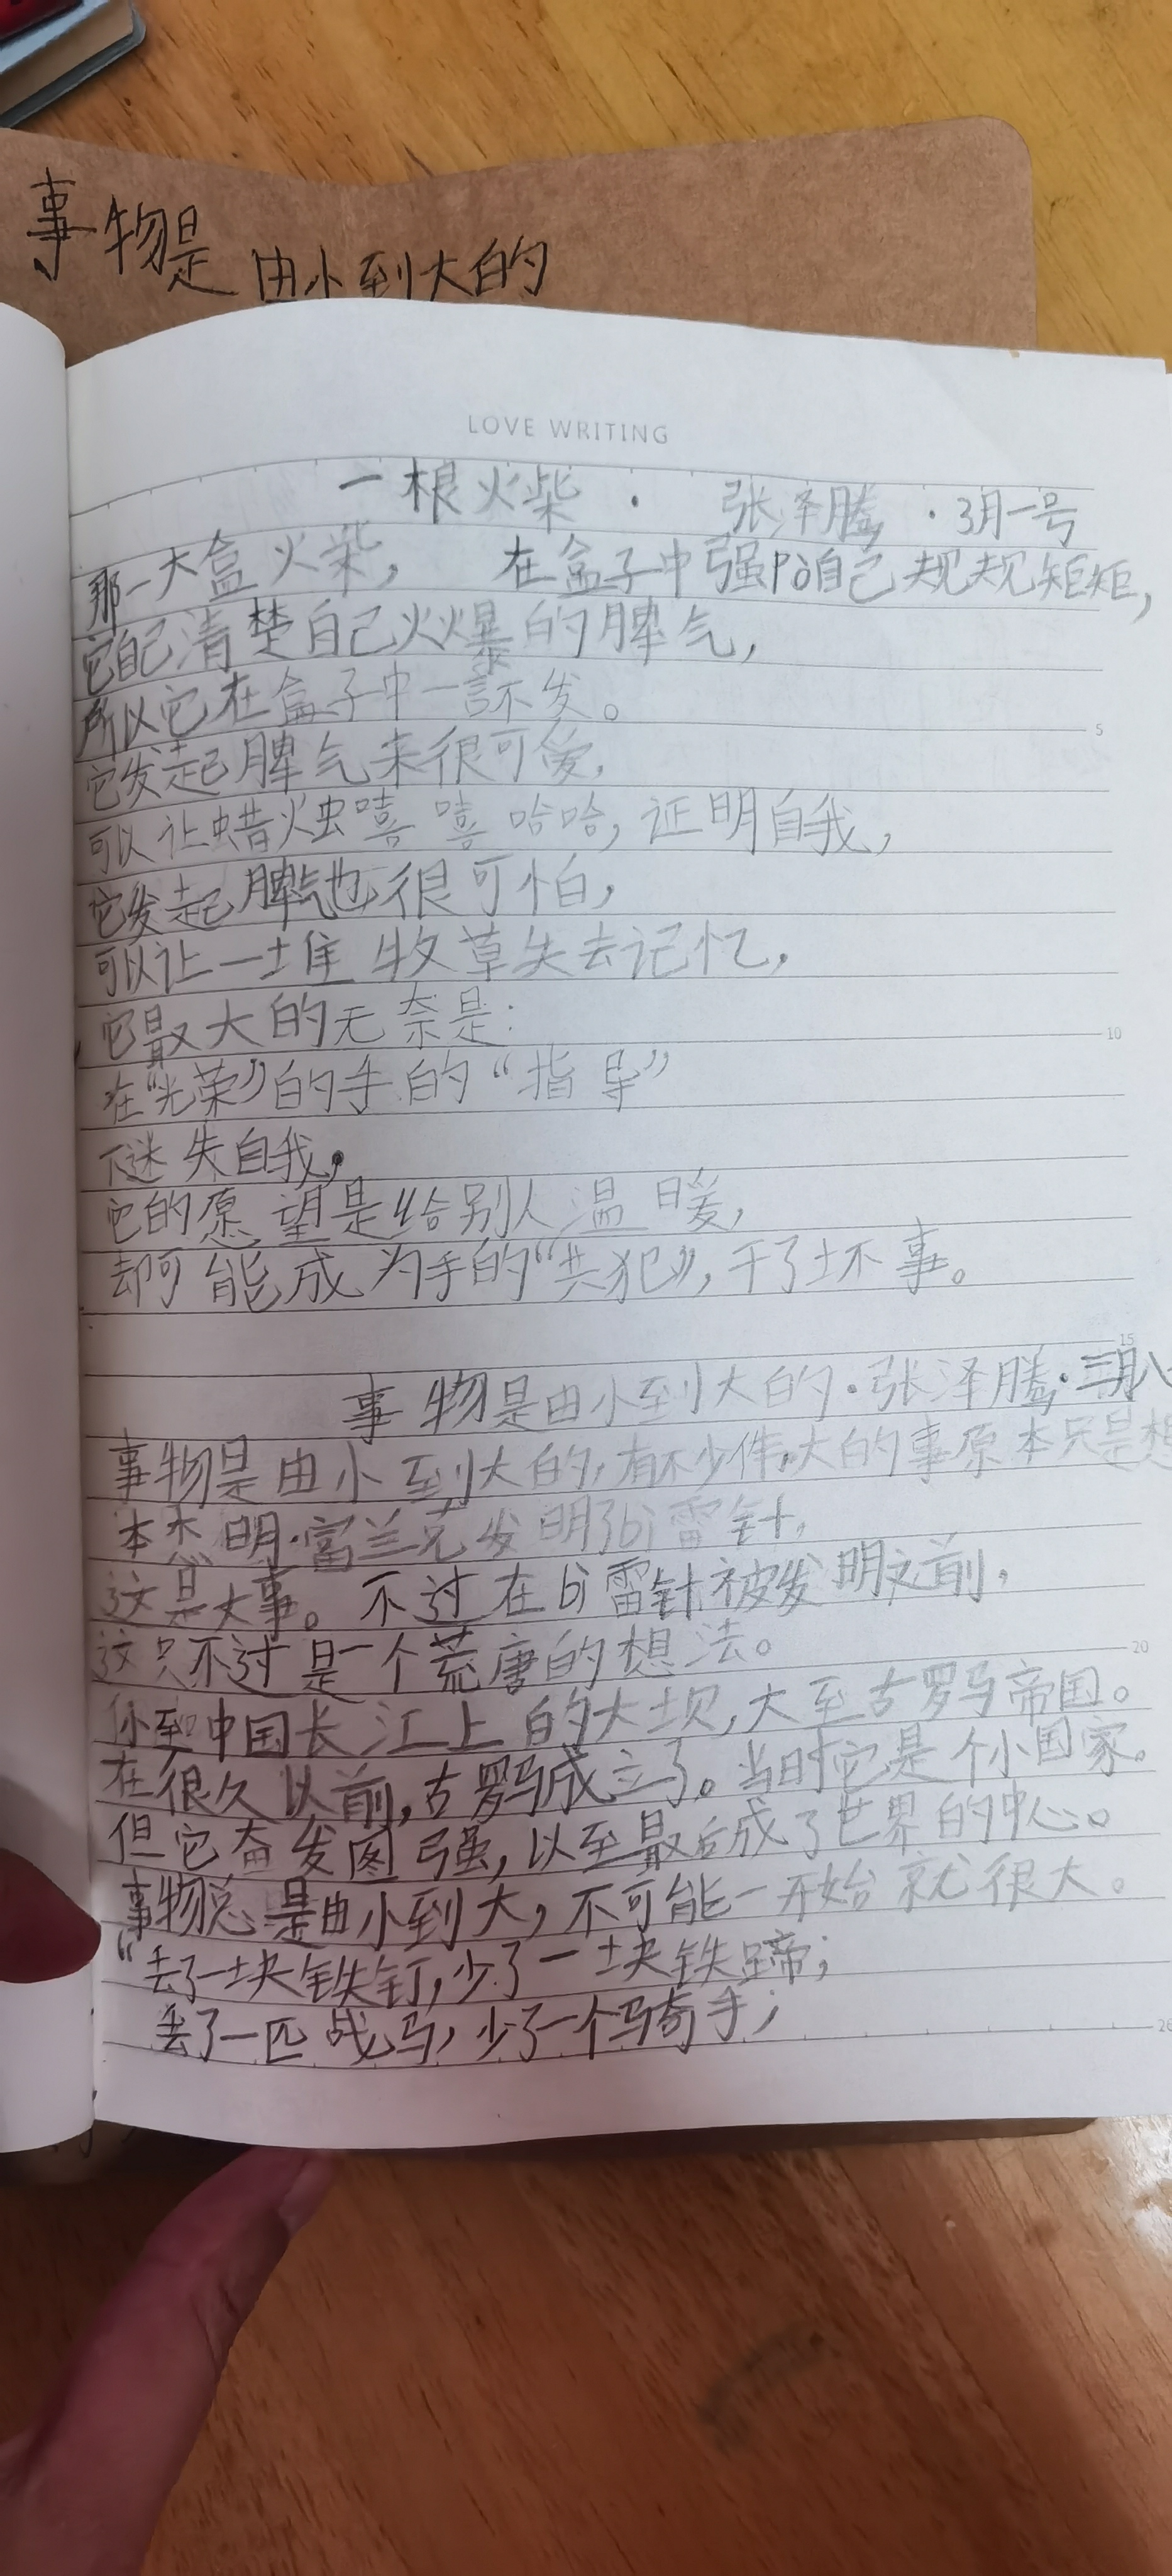 事物是 由小到大的
LOVE WRITING
一根火柴 · 张泽腾 · 3月一号
那一大盒火柴， 在盒子中强pò自己规规矩矩，
它自己清楚自己火爆的脾气，
所以它在盒子中一言不发。
5
它发起脾气来很可爱，
可以让蜡烛嘻嘻哈哈，证明自我，
它发起脾气也很可怕，
可以让一堆牧草失去记忆，
它最大的无奈是：
10
在“光荣”的手的“指导”
下迷失自我，
它的愿望是给别人温暖，
却可能成为手的“共犯”，干了坏事。
15
事物是由小到大的·张泽腾·三月八
事物是由小到大的，有不少伟大的事原本只是想
本杰明·富兰克发明了bì雷针，
这是大事。不过在bì雷针被发明之前，
这只不过是一个荒唐的想法。
20
小到中国长江上的大坝，大至古罗马帝国。
在很久以前，古罗马成立了。当时它是个小国家。
但它奋发图强，以至最后成了世界的中心。
事物总是由小到大，不可能一开始就很大。
“丢了一块铁钉，少了一块铁蹄；
丢了一匹战马，少了一个马奇手；
26